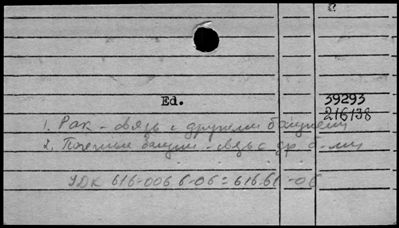 С.
Ed. 39293
216138
1. Рак - связь с другими болезнями
2. Почечные болезни - связь с др. б-ми
УДК 616-006.6-06:616.61-06